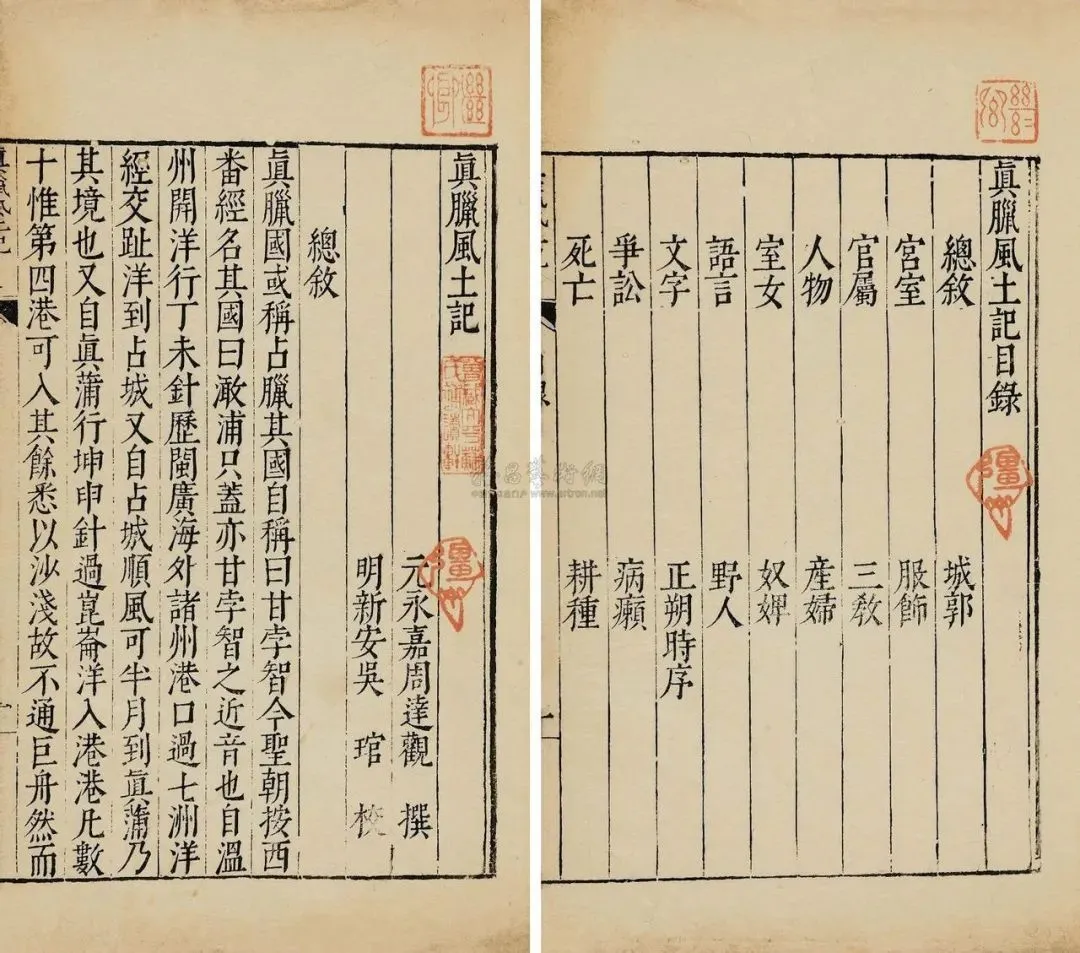 眞臘風土記目錄
總敘 城郭
宮室 服飾
官屬 三敎
人物 產婦
室女 奴婢
語言 野人
文字 正朔時序
爭訟 病癩
死亡 耕種
眞臘風土記
元永嘉周達觀 撰
明新安吳 琯 校
總敘
眞臘國或稱占臘其國自稱曰甘孛智今聖朝按西
番經名其國曰澉浦只蓋亦甘孛智之近音也自溫
州開洋行丁未針歷閩廣海外諸州港口過七洲洋
經交趾洋到占城又自占城順風可半月到眞蒲乃
其境也又自眞蒲行坤申針過崑崙洋入港港凡數
十惟第四港可入其餘悉以沙淺故不通巨舟然而
www.artron.net